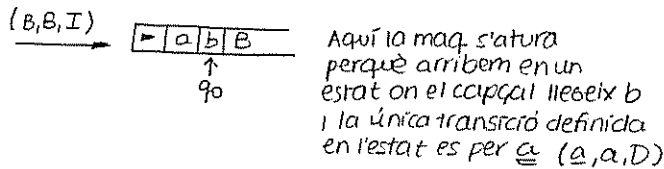 (B,B,I)
► a b B
q0
Aquí la maq. s'atura
perquè arribem en un
estat on el capçal llegeix b
i la única transició definida
en l'estat es per a (a,a,D)